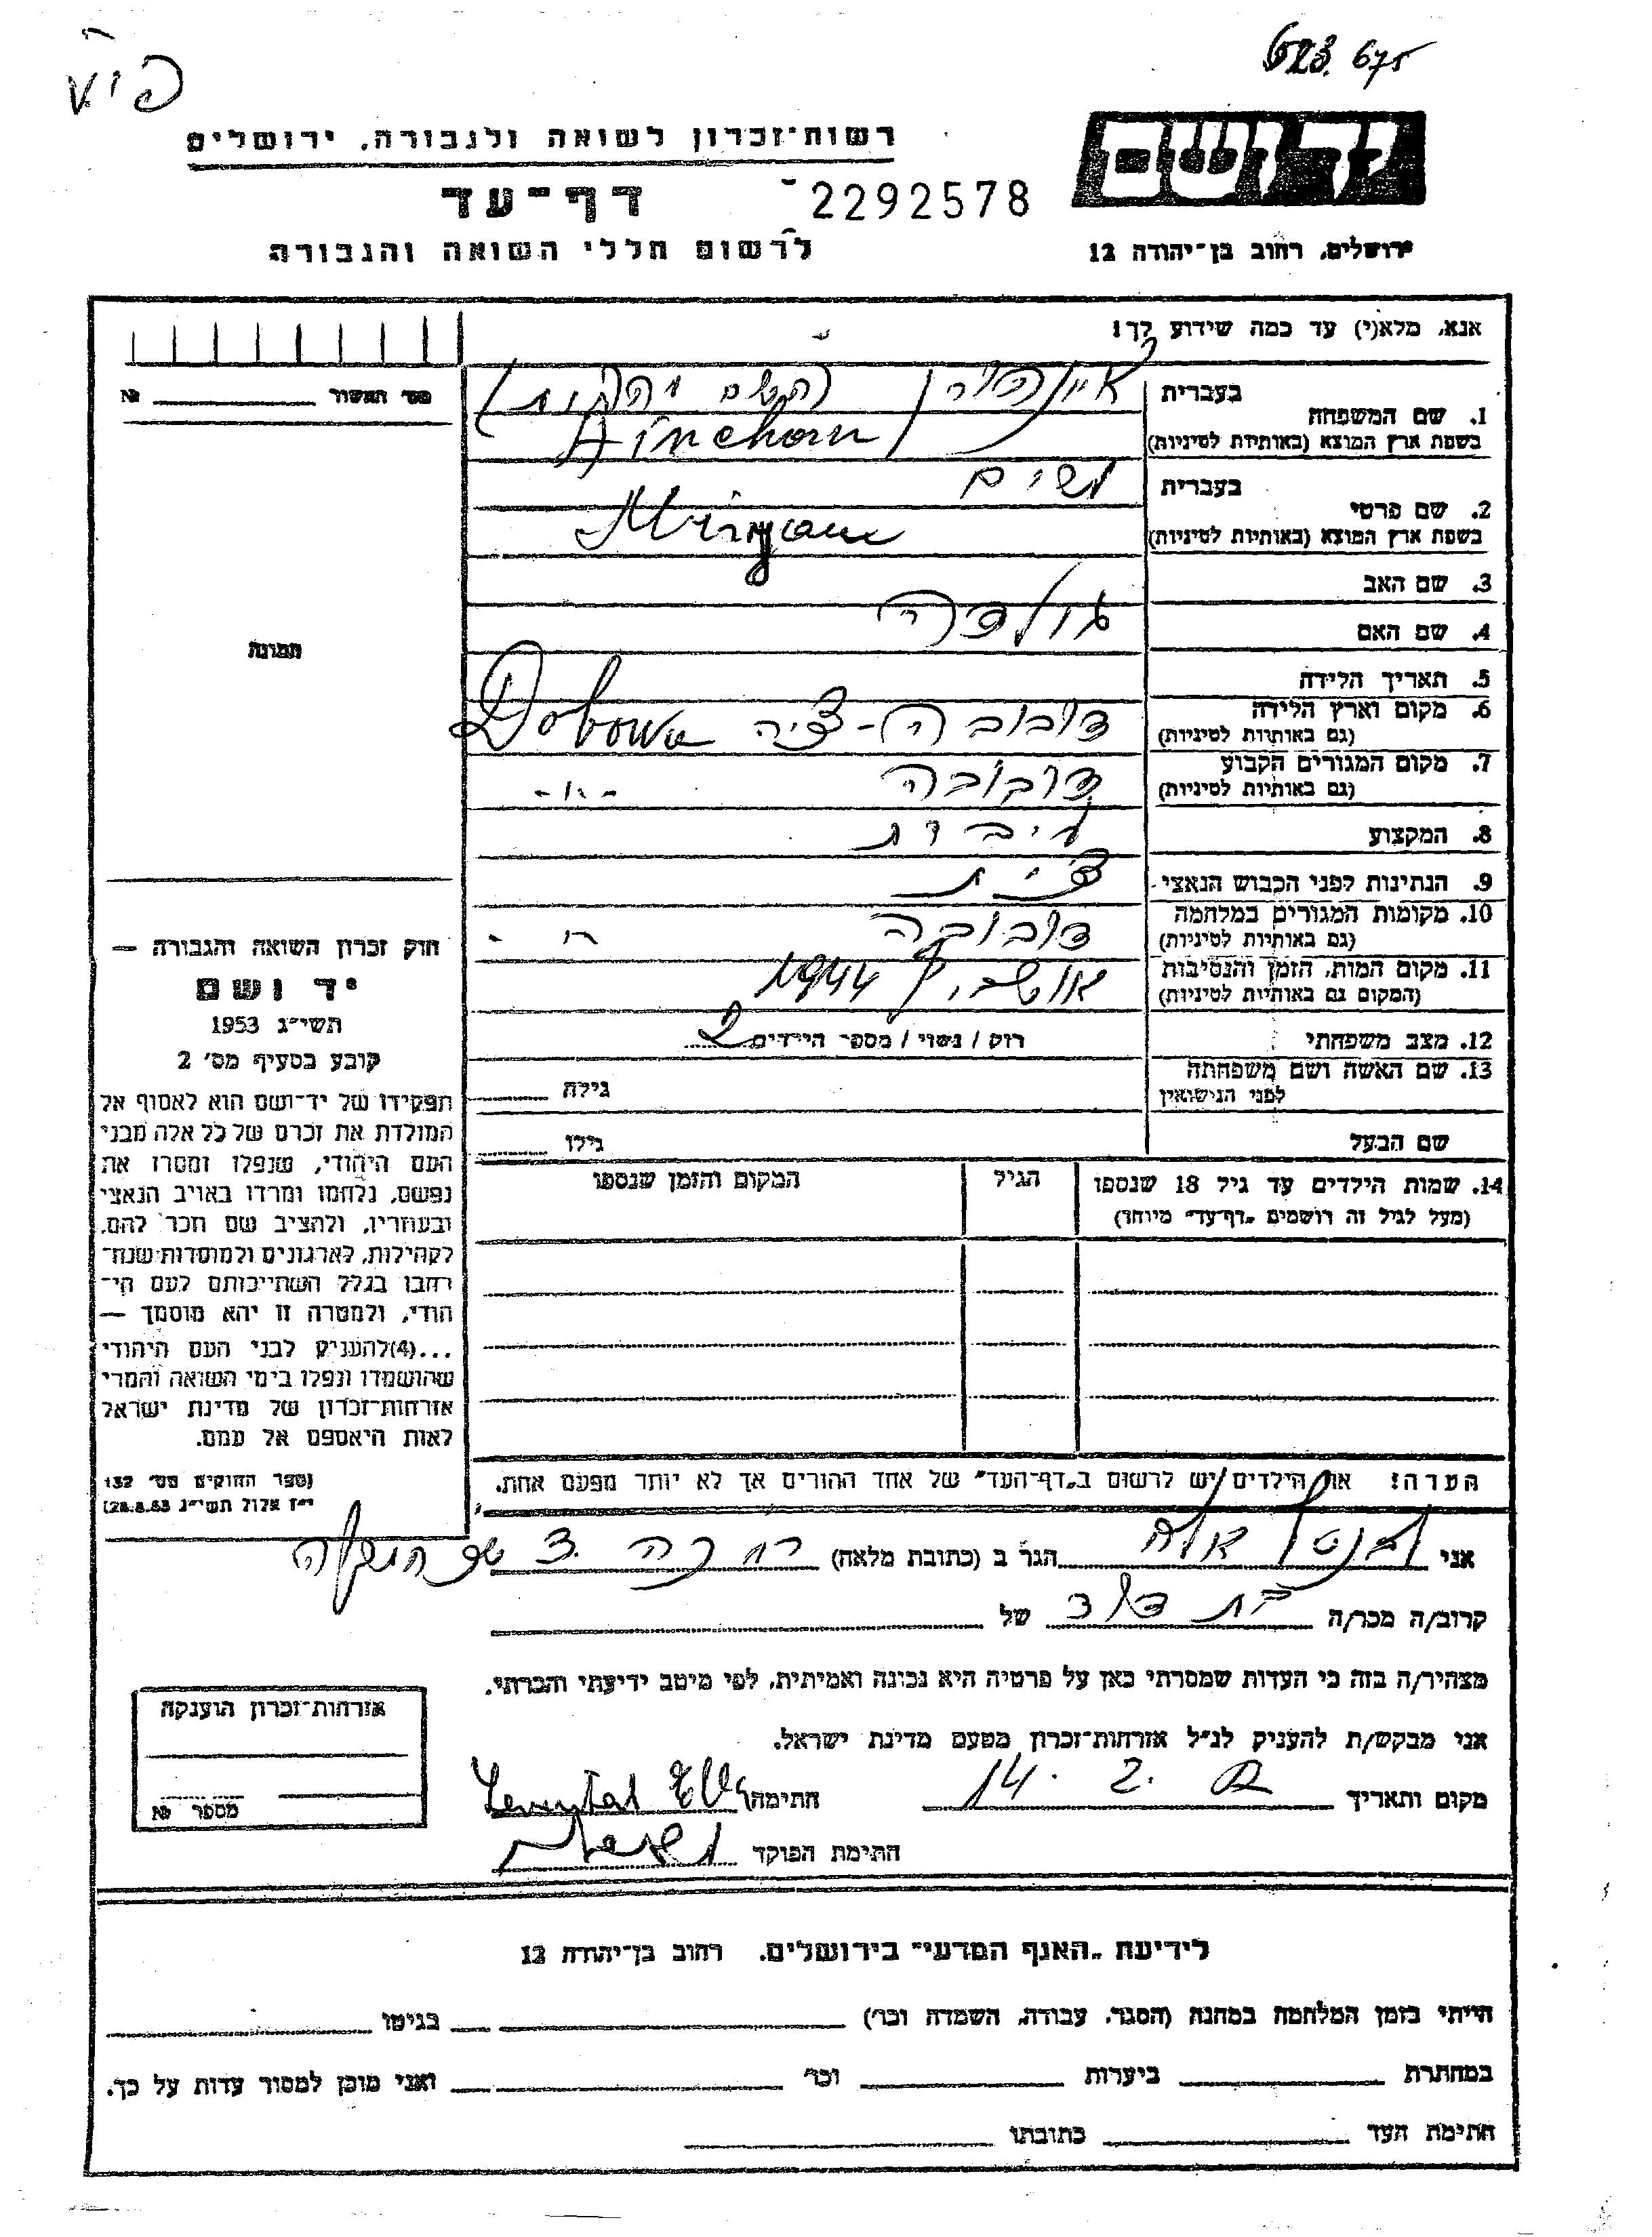 623. 675
רשות־זכרון לשואה ולגבורה, ירושלים
יד ושם
דף־עד
2292578
לרשום חללי השואה והגבורה
ירושלים, רחוב בן־יהודה 12
אנא, מלא(י) עד כמה שידוע לך!
מס׳ האשור № 
1. שם המשפחה
בעברית איינהורן
בשפת ארץ המוצא (באותיות לטיניות) Ainchorn
2. שם פרטי
בעברית מרים
בשפת ארץ המוצא (באותיות לטיניות) Miryam
3. שם האב
4. שם האם גולדה
5. תאריך הלידה
6. מקום וארץ הלידה דובובה - צ׳יה Dobowa
(גם באותיות לטיניות)
7. מקום המגורים הקבוע דובובה - " -
(גם באותיות לטיניות)
8. המקצוע
9. הנתינות לפני הכבוש הנאצי צ׳כית
10. מקומות המגורים במלחמה דובובה - " -
(גם באותיות לטיניות)
11. מקום המות, הזמן והנסיבות אושביץ 1944
(המקום גם באותיות לטיניות)
12. מצב משפחתי רווק / נשוי / מספר הילדים 2
13. שם האשה ושם משפחתה גילה
לפני הנישואין
שם הבעל גילו
14. שמות הילדים עד גיל 18 שנספו הגיל המקום והזמן שנספו
(מעל לגיל זה רושמים „דף־עד" מיוחד)
תמונה
חוק זכרון השואה והגבורה —
יד ושם
תשי״ג 1953
קובע בסעיף מס׳ 2
תפקידו של יד־ושם הוא לאסוף אל
המולדת את זכרם של כל אלה מבני
העם היהודי, שנפלו ומסרו את
נפשם, נלחמו ומרדו באויב הנאצי
ובעוזריו, ולהציב שם וזכר להם,
לקהילות, לארגונים ולמוסדות שנח־
רבו בגלל השתייכותם לעם הי־
הודי, ולמטרה זו יהא מוסמך —
...(4)להעניק לבני העם היהודי
שהושמדו ונפלו בימי השואה והמרי
אזרחות־זכרון של מדינת ישראל
לאות היאספם אל עמם.
(ספר החוקים מס׳ 132
י״ז אלול תשי״ג 28.8.53)
הערה! את הילדים יש לרשום ב„דף־העד" של אחד ההורים אך לא יותר מפעם אחת.
אני הגר ב (כתובת מלאה)
קרוב/ה מכר/ה בת דוד של
מצהיר/ה בזה כי העדות שמסרתי כאן על פרטיה היא נכונה ואמיתית, לפי מיטב ידיעתי והכרתי.
אני מבקש/ת להעניק לנ״ל אזרחות־זכרון מטעם מדינת ישראל.
מקום ותאריך 14. 2. חתימה
חתימת הפוקד
אזרחות־זכרון הוענקה
מספר №
לידיעת „האגף המדעי" בירושלים, רחוב בן־יהודה 12
הייתי בזמן המלחמה במחנה (הסגר, עבודה, השמדה וכו׳) בגיטו
במחתרת ביערות וכו׳ ואני מוכן למסור עדות על כך.
חתימת העד כתובתו